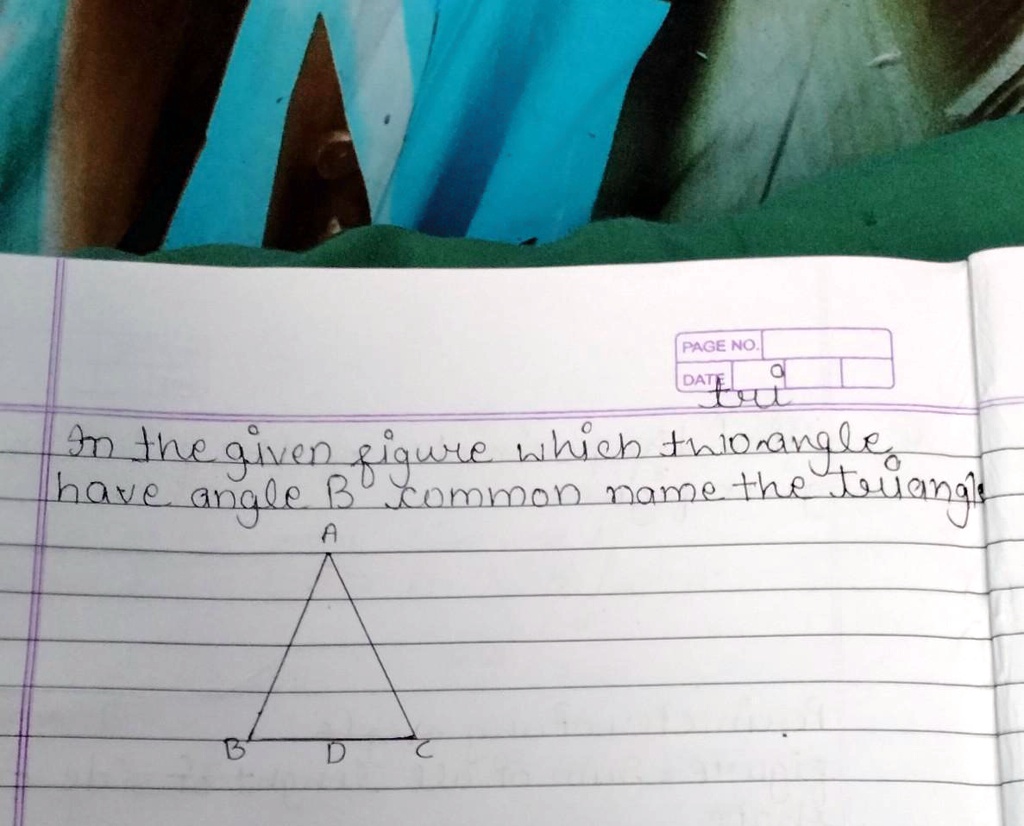 PAGE NO.
DATE
tri
In the given figure which two angle
have angle B common name the triangle
A
B D C